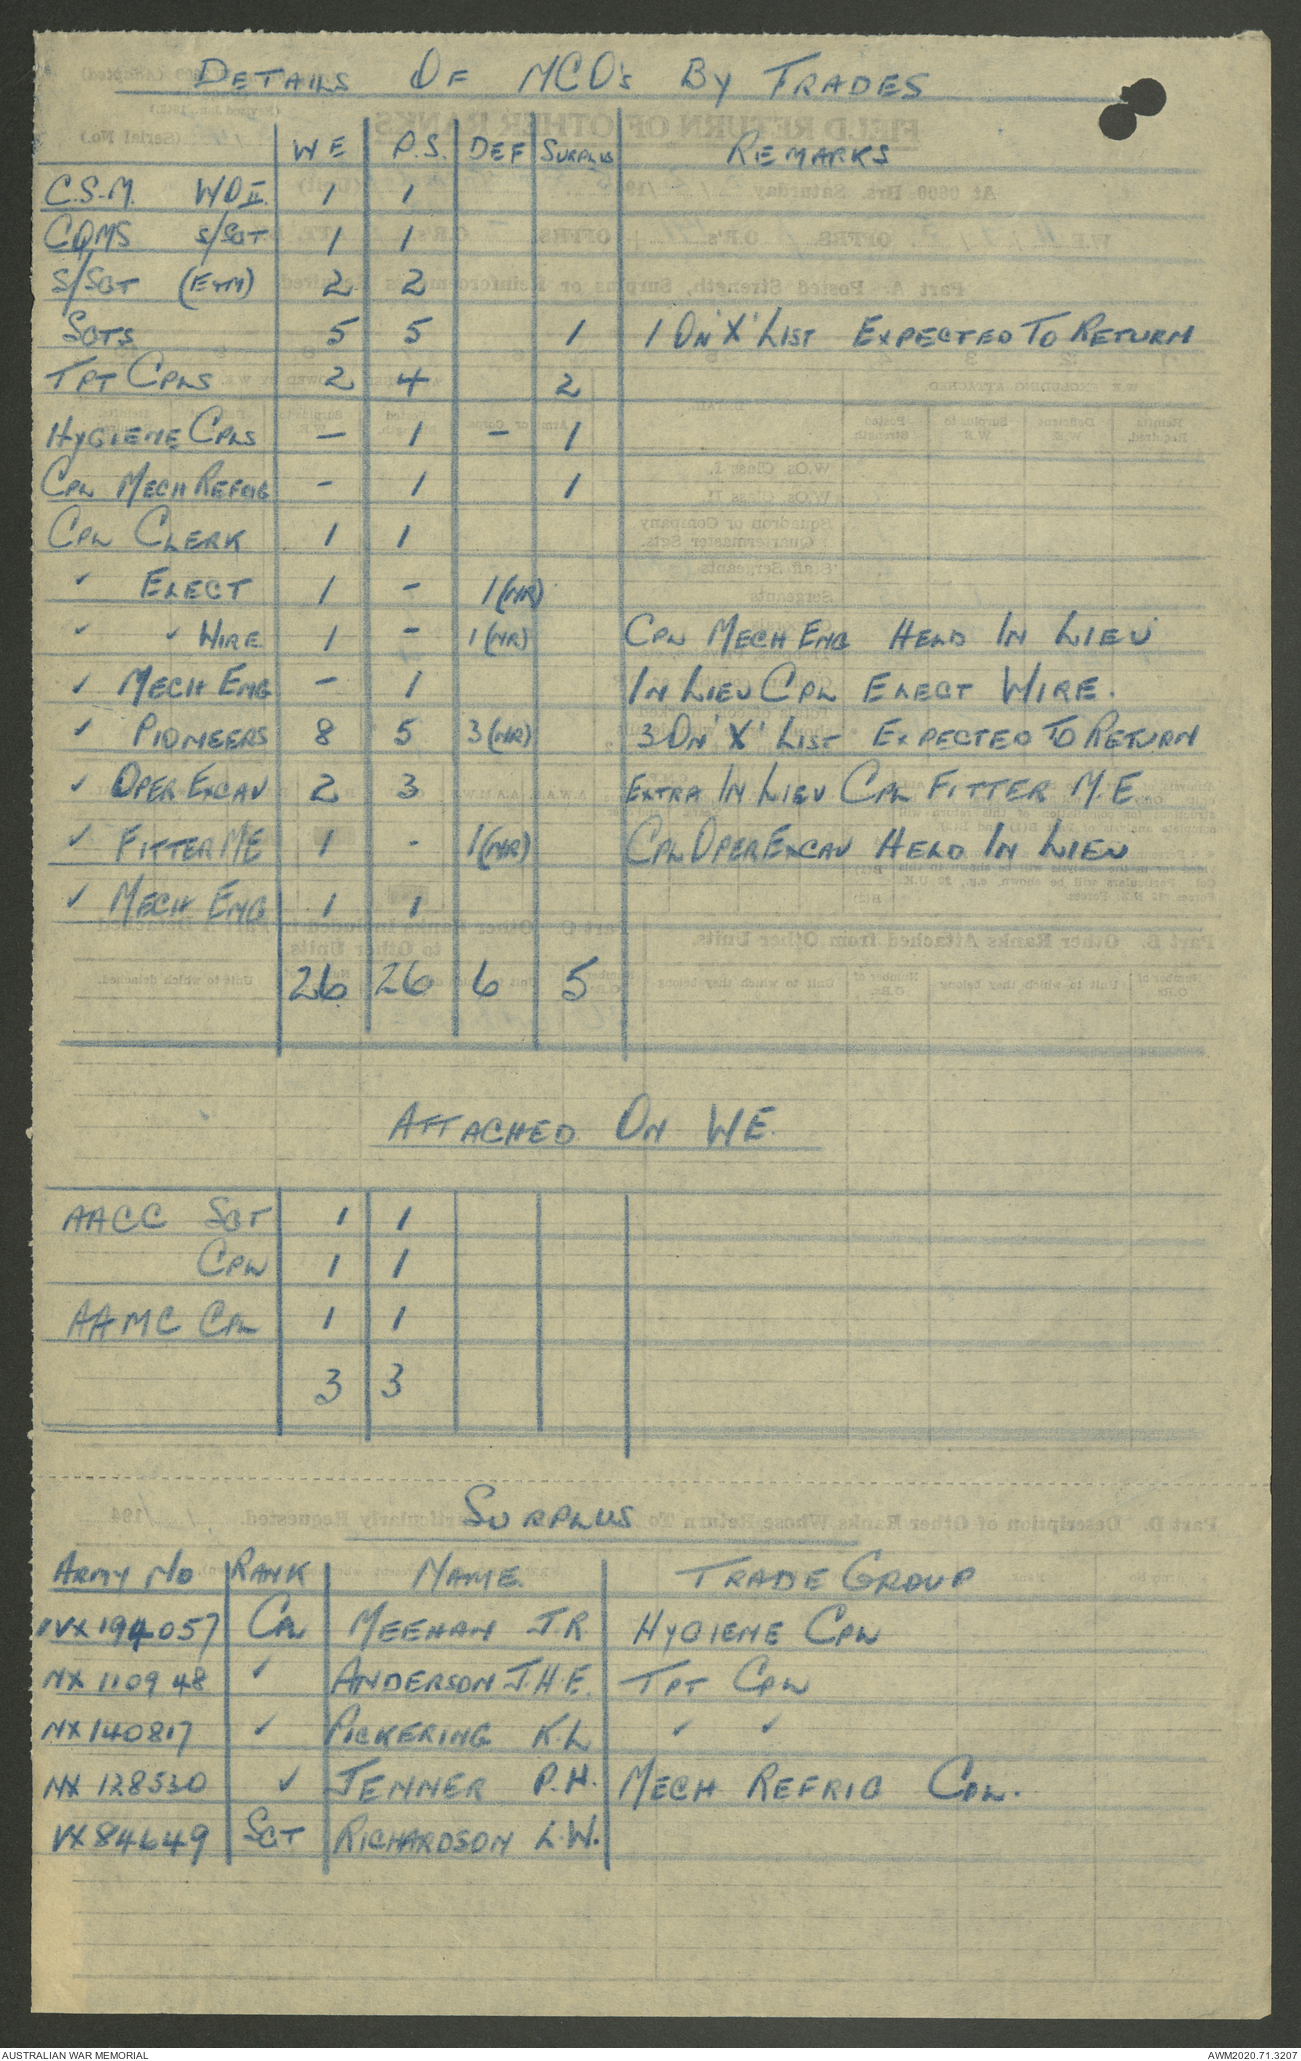 DETAILS OF NCO's BY TRADES
WE P.S. DEF SURPLUS REMARKS
C.S.M. WO II 1 1
CQMS S/SGT 1 1
S/SGT (ETM) 2 2
SGTS 5 5 1 1 ON 'X' LIST EXPECTED TO RETURN
TPT CPLS 2 4 2
HYGIENE CPLS — 1 – 1
CPL MECH REFRIG – 1 1
CPL CLERK 1 1
✓ ELECT 1 – 1 (NR)
✓ ✓ WIRE 1 – 1 (NR) CPL MECH ENG HELD IN LIEU
✓ MECH ENG – 1 IN LIEU CPL ELECT WIRE.
✓ PIONEERS 8 5 3 (NR) 3 ON 'X' LIST EXPECTED TO RETURN
✓ OPER EXCAV 2 3 EXTRA IN LIEU CPL FITTER M.E
✓ FITTER ME 1 - 1 (NR) CPL OPER EXCAV HELD IN LIEU
✓ MECH ENG 1 1
26 26 6 5
ATTACHED ON WE.
AACC SGT 1 1
CPL 1 1
AAMC CPL 1 1
3 3
SURPLUS
ARMY NO RANK NAME. TRADE GROUP
VX194057 CPL MEEHAN J.R. HYGIENE CPL
NX 110948 ✓ ANDERSON J.H.E. TPT CPL
NX140817 ✓ PICKERING K.L ✓ ✓
NX 128530 ✓ JENNER P.H. MECH REFRIG CPL.
VX84649 SGT RICHARDSON L.W.
AUSTRALIAN WAR MEMORIAL AWM2020.71.3207